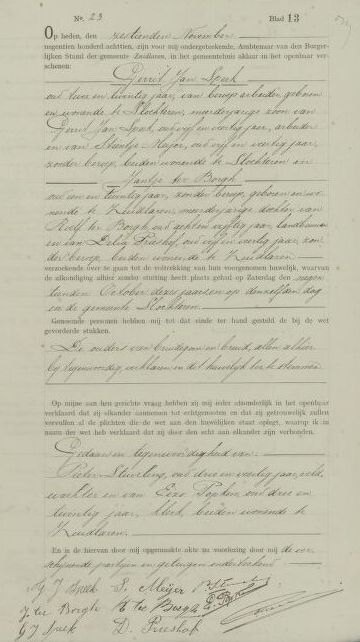 No. 23 Blad 13
Op heden, den zestienden November
negentien honderd achttien, zijn voor mij ondergeteekende, Ambtenaar van den Burger-
lijken Stand der gemeente Zuidlaren, in het gemeentehuis aldaar in het openbaar ver-
schenen:
Gerrit Jan Spek
oud twee en twintig jaar, van beroep arbeider, geboren
en wonende te Slochteren, meerderjarige zoon van
Gerrit Jan Spek, oud vijf en veertig jaar, arbeider
en van Meijer, oud vijf en veertig jaar,
zonder beroep, beiden wonende te Slochteren en
Jantje ter Borgh
oud een en twintig jaar, zonder beroep, geboren en wo-
nende te Zuidlaren, meerderjarige dochter van
Roelf ter Borgh, oud jaar, landbouwer
en van oud vijf en veertig jaar, zon-
der beroep, beiden wonende te Zuidlaren
verzoekende over te gaan tot de voltrekking van hun voorgenomen huwelijk, waarvan
de afkondiging alhier zonder stuiting heeft plaats gehad op Zaterdag den negen-
tienden October dezes jaars en op denzelfden dag
in de gemeente Slochteren
Genoemde personen hebben mij tot dat einde ter hand gesteld de bij de wet
gevorderde stukken.
De ouders van bruidegom en bruid, allen alhier
tegenwoordig, verklaren in dit huwelijk toe te stemmen
Op mijne aan hen gerichte vraag hebben zij mij ieder afzonderlijk in het openbaar
verklaard dat zij elkander aannemen tot echtgenooten en dat zij getrouwelijk zullen
vervullen al de plichten die de wet aan den huwelijken staat oplegt, waarop ik in
naam der wet heb verklaard dat zij door den echt aan elkander zijn verbonden.
Gedaan in tegenwoordigheid van:
Pieter oud drie en veertig jaar, veld-
wachter en van Popken, oud drie en
twintig jaar, klerk, beiden wonende te
Zuidlaren.
En is de hiervan door mij opgemaakte akte na voorlezing door mij de ver-
schijnende partijen en getuigen onderteekend
G J Spek S. Meijer
J. ter Borgh R ter Borgh
G J Spek D.